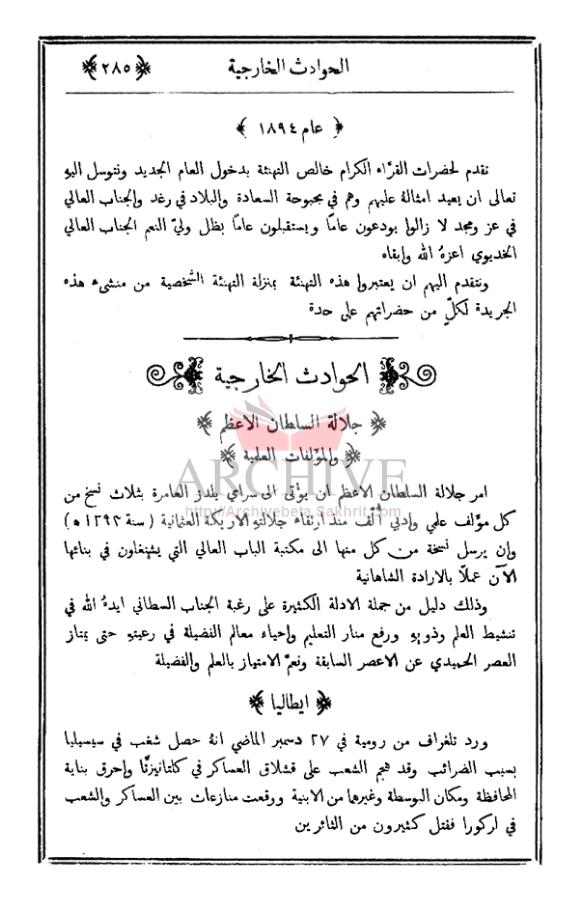 الحوادث الخارجية ﴿٢٨٥﴾
﴿ عام ١٨٩٤ ﴾
نقدم لحضرات القرّاء الكرام خالص التهنئة بدخول العام الجديد ونتوسل اليهِ
تعالى ان يعيد امثالهُ عليهم وهم في بحبوحة السعادة والبلاد في رغد والجناب العالي
في عز ومجد لا زالوا يودعون عامًا ويستقبلون عامًا بظل وليّ النعم الجناب العالي
الخديوي اعزهُ الله وابقاه
ونتقدم اليهم ان يعتبروا هذه التهنئة بمنزلة التهنئة الشخصية من منشىء هذه
الجريدة لكلٍّ من حضراتهم على حدة
الحوادث الخارجية
﴿ جلالة السلطان الاعظم ﴾
﴿ والمؤلفات العلمية ﴾
ARCHIVE
امر جلالة السلطان الاعظم ان يؤتى الى سراي يلدز العامرة بثلاث نسخ من
http://Archivebeta.Sakhrit.com
كل مؤلف علمي وادبي أُلّف منذ ارتقاء جلالتهِ الاريكة العثمانية (سنة ١٢٩٣ ه)
وان يرسل نسخة من كل منها الى مكتبة الباب العالي التي يشتغلون في بنائها
الآن عملًا بالارادة الشاهانية
وذلك دليل من جملة الادلة الكثيرة على رغبة الجناب السطاني ايدهُ الله في
تنشيط العلم وذويهِ ورفع منار التعليم واحياء معالم الفضيلة في رعيتهِ حتى يمتاز
العصر الحميدي عن الاعصر السابقة ونعمّ الامتياز بالعلم والفضيلة
﴿ ايطاليا ﴾
ورد تلغراف من رومية في ٢٧ دسمبر الماضي انهُ حصل شغب في سيسيليا
بسبب الضرائب وقد هجم الشعب على قشلاق العساكر في كلتانيزتّا واحرق بناية
المحافظة ومكان البوسطة وغيرهما من الابنية ووقعت منازعات بين العساكر والشعب
في اركورا فقتل كثيرون من الثائرين